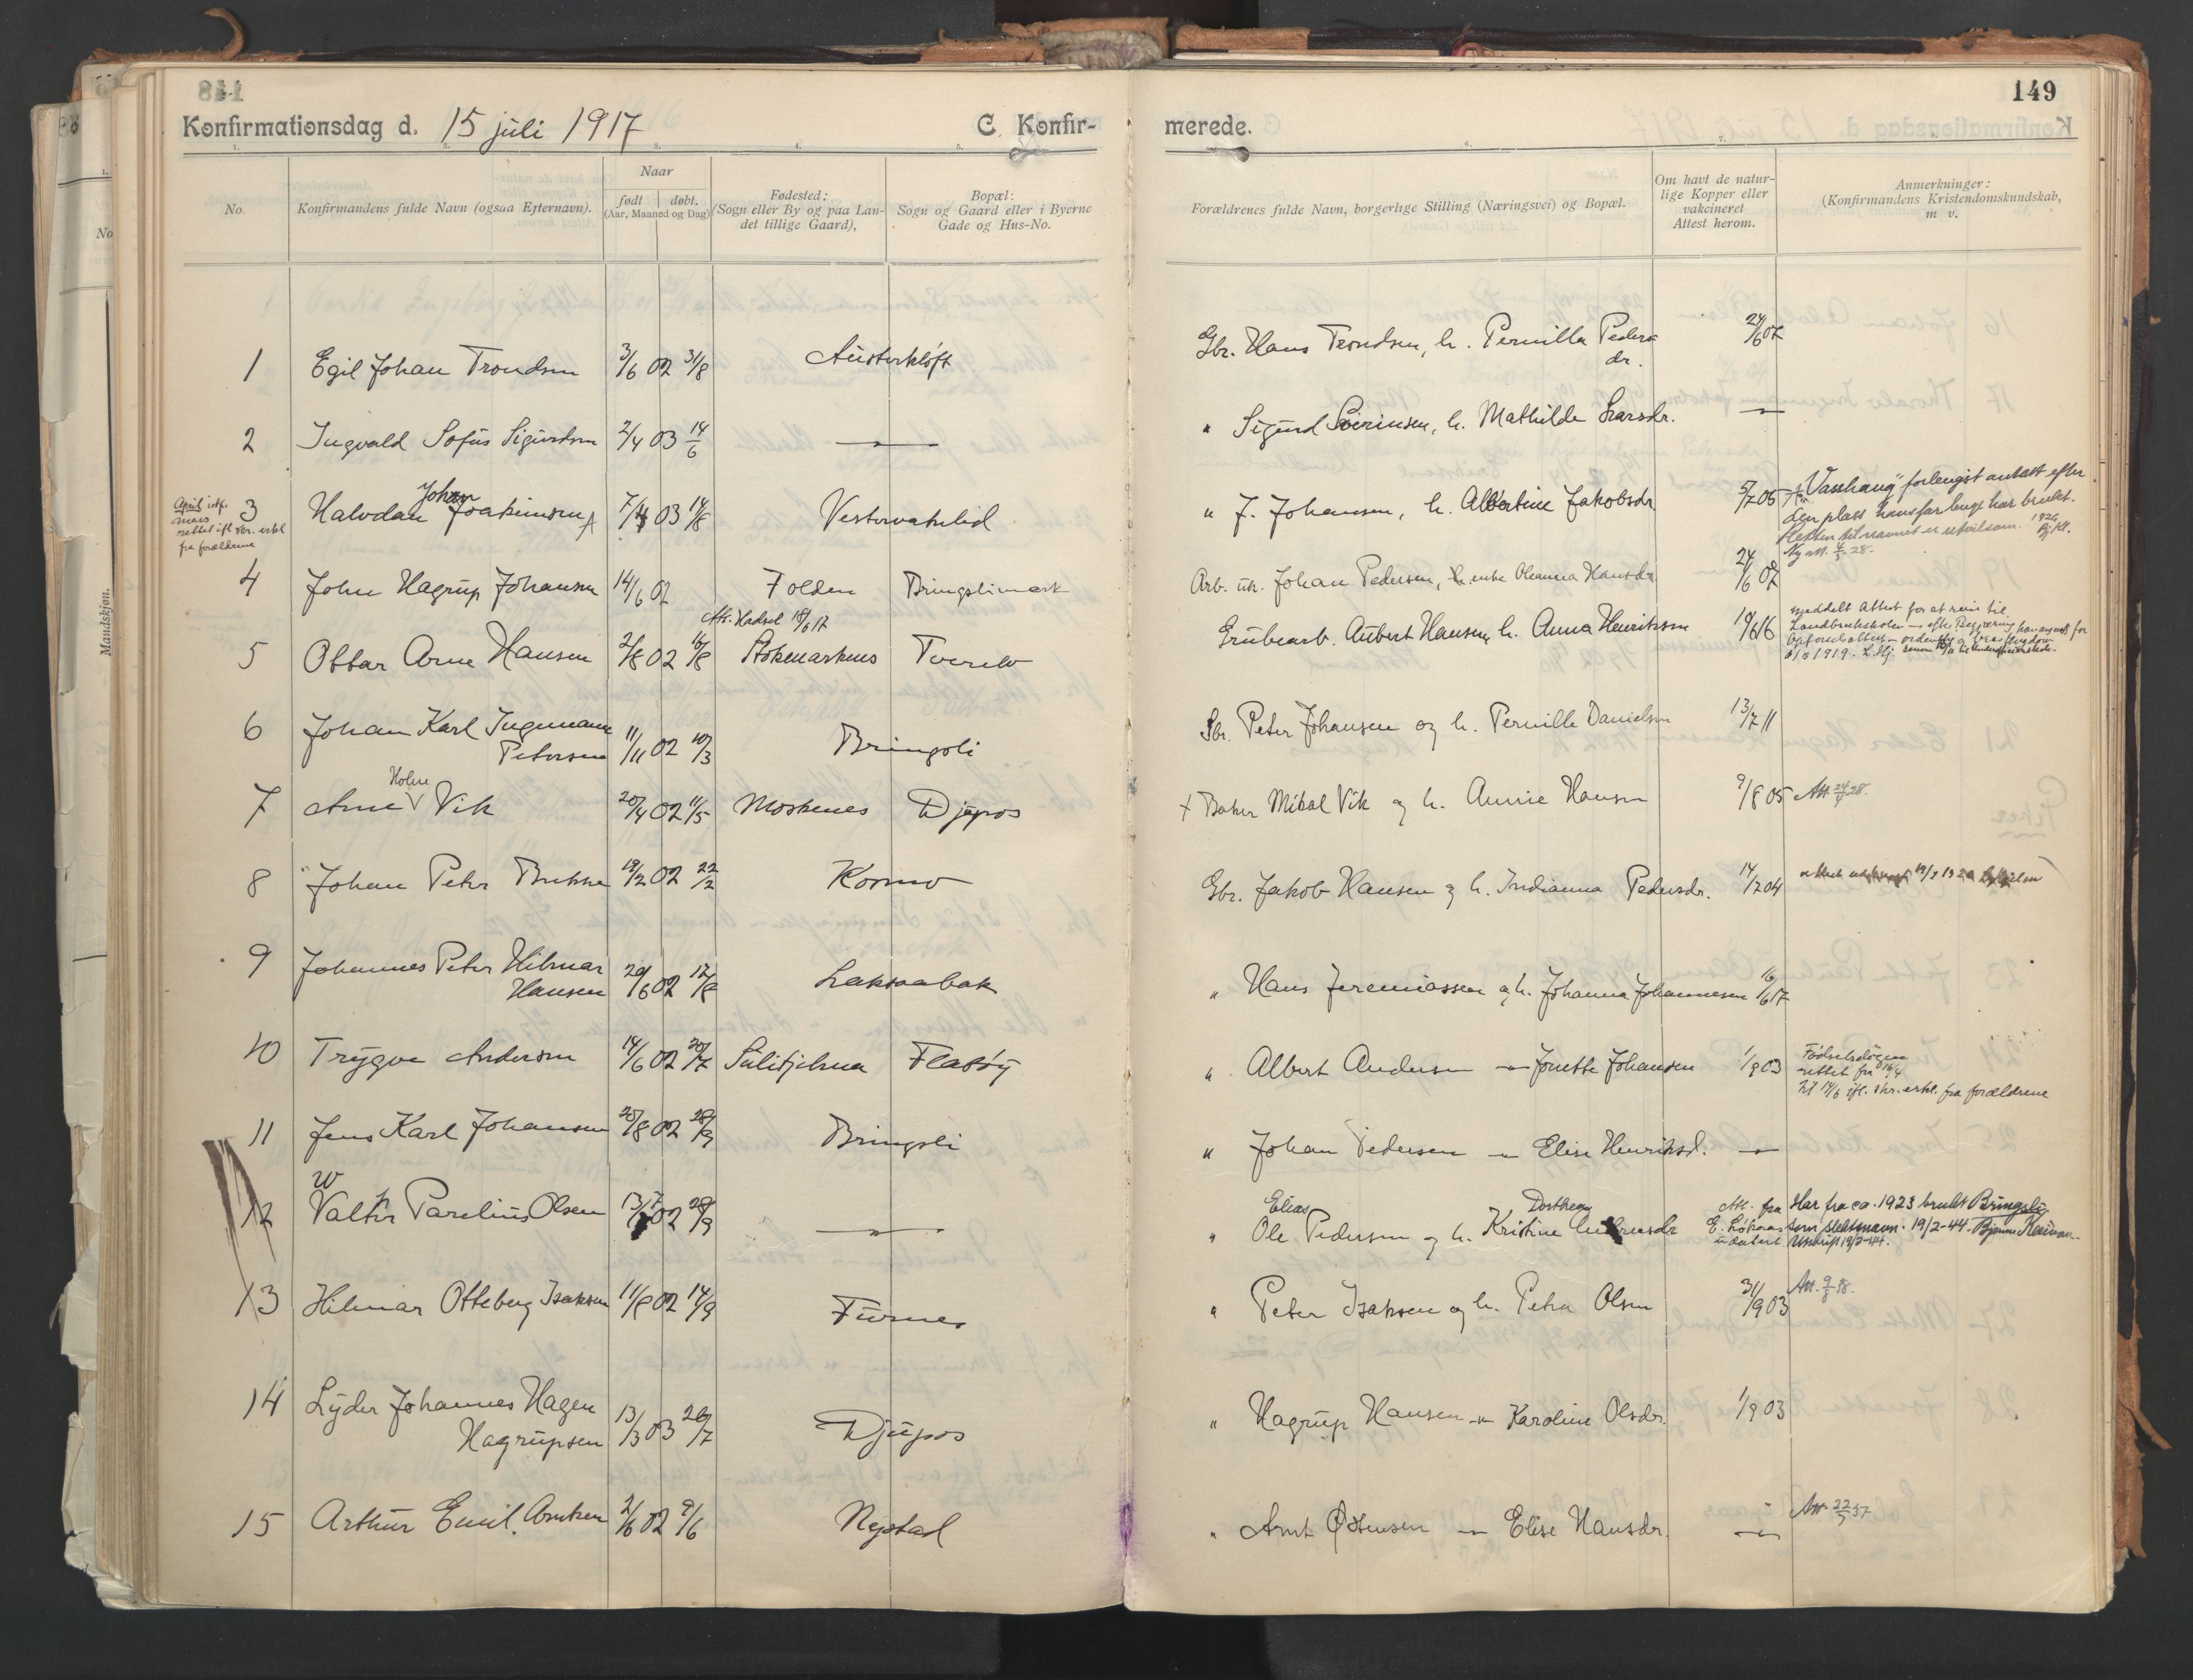 148
149
Konfirmationsdag d. 15 juli 1917
C. Konfir-
merede.
No.
Konfirmandens fulde Navn (ogsaa Efternavn).
Naar
født døbt.
(Aar, Maaned og Dag)
Fødested:
(Sogn eller By og paa Lan-
det tillige Gaard),
Bopæl:
Sogn og Gaard eller i Byerne
Gade og Hus-No.
Forældrenes fulde Navn, borgerlige Stilling (Næringsvei) og Bopæl.
Om havt de natur-
lige Kopper eller
vakcineret
Attest herom.
Anmerkninger:
(Konfirmandens Kristendomskundskab,
m v.
No
Mandskjøn.
1 Egil Johan Trondsen 3/6 02 31/8 Austerkløft Gbr. Hans Trondsen, h. Pernilla Peders
dr. 24/6 07
2 Ingvald Sofus Sigurdsen 2/4 03 14/6 —"— " Sigurd Sørensen, h. Mathilde Larsdr. —"—
April istf.
mars
rettet ifl. skr. erkl.
fra forældrene
3 Halvdan Johan Joakimsen 7/4 03 14/8 Vestervatnlid " J. Johansen, h. Albertine Jakobsdr. 5/7 05 "Vasshaug" forlengst antatt efter
den plass hans far lenge har brukt.
Retten til navnet er utvilsom. 1926
Ny att. 4/3 28.
4 John Hagrup Johansen 14/6 02 Folden Bringslimark Arb. uk. Johan Pedersen, h. enke Oleanna Hansdr. 24/6 07
Att. Hadsel 18/6 17
5 Ottar Arne Hansen 2/8 02 16/8 Tverelv Grubearb. Aubert Hansen, h. Anna Henriksen 19/6 16 meddelt Attest for at reise til
Landbruksskolen
6 Johan Karl Ingemann
Petersen 11/11 02 10/3 Bringsli Gbr. Peter Johansen og h. Pernille Danielsen 13/7 11
7 Arne Holm Vik 20/4 02 11/5 Moskenes Djupos + Baker Mikal Vik og h. Annie Hansen 9/8 05 Att.
8 Johan Peter Brekke 19/2 02 22/2 Kosmo Gbr. Jakob Hansen og h. Indianna Pedersdr. 14/7 04
9 Johannes Peter Hilmar
Hansen 20/6 02 17/8 Laksaabak " Hans Jeremiassen og h. Johanna Johannesen 16/6 17
10 Trygve Andersen 14/6 02 20/7 Sulitjelma Flatøy " Albert Andersen —"— Jonette Johansen 1/9 03 Fødselsdagen
rettet fra 19/4
til 14/6 ifl. skr. erkl. fra forældrene
11 Jens Karl Johansen 20/8 02 28/9 Bringsli " Johan Pedersen —"— Elise Henriksd. —"—
W
12 Valter Parelius Olsen 13/7 02 28/9 —"—
Elias Dorthea
" Ole Pedersen og h. Kristine Andreasdr. Att. fra Har fra ca. 1923 brukt Bringsli
E. Løknas som slektsnavn. 19/2-44.
udatert. Utskrift 19/2-44.
13 Hilmar Otteberg Isaksen 11/8 02 14/9 Furnes " Peter Isaksen og h. Petra Olsen 31/9 03 Att.
14 Lyder Johannes Hagen
Hagrupsen 13/3 03 26/7 Djupos " Hagrup Hansen —"— Karoline Olsdr. 1/9 03
15 Arthur Emil Arntsen 2/6 02 9/6 Nystad " Arnt Østensen —"— Elise Hansdr. —"— Att. 22/5 37